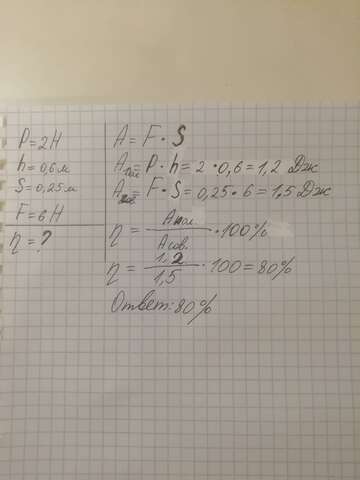 P = 2Н
h = 0,6 м
S = 0,25 м
F = 6Н
η = ?
A = F · S
Aпол = P · h = 2 · 0,6 = 1,2 Дж
Aсов = F · S = 0,25 · 6 = 1,5 Дж
η = Aпол / Aсов. · 100%
η = 1,2 / 1,5 · 100 = 80%
Ответ: 80%